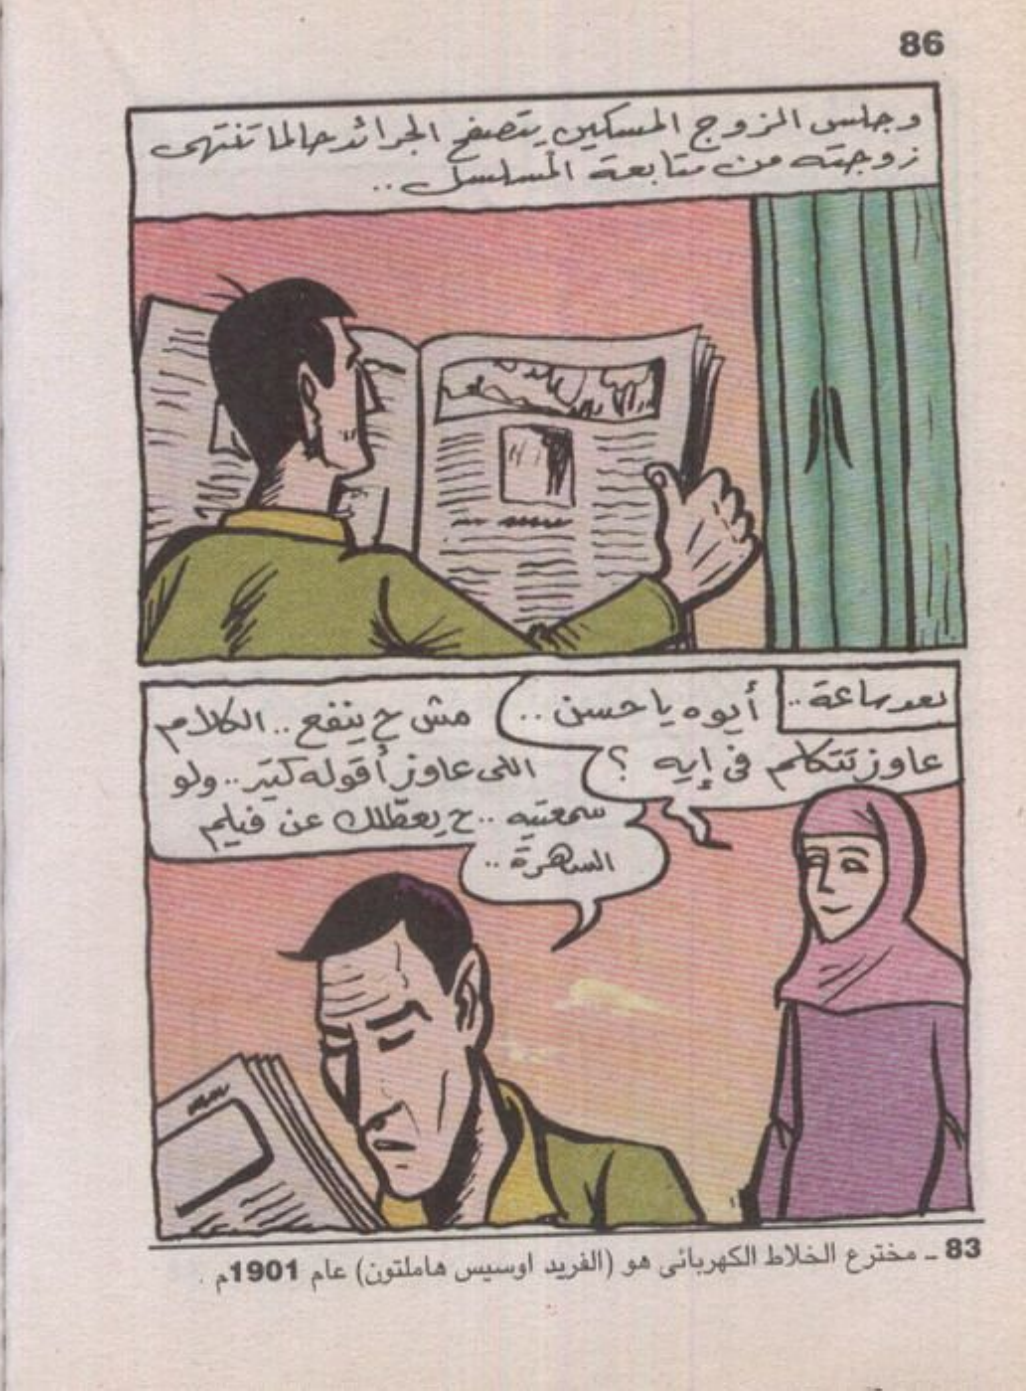 86
وجلس الزوج المسكين يتصفح الجرائد حالما تنتهى
زوجته من متابعة المسلسل..
بعد ساعة..
أيوه يا حسن..
عاوز تتكلم فى إيه ؟
مش ح ينفع.. الكلام
اللى عاوز أقوله كتير.. ولو
سمعتيه.. ح يعطلك عن فيلم
السهرة..
83 ـ مخترع الخلاط الكهربائى هو (الفريد اوسيس هاملتون) عام 1901م .